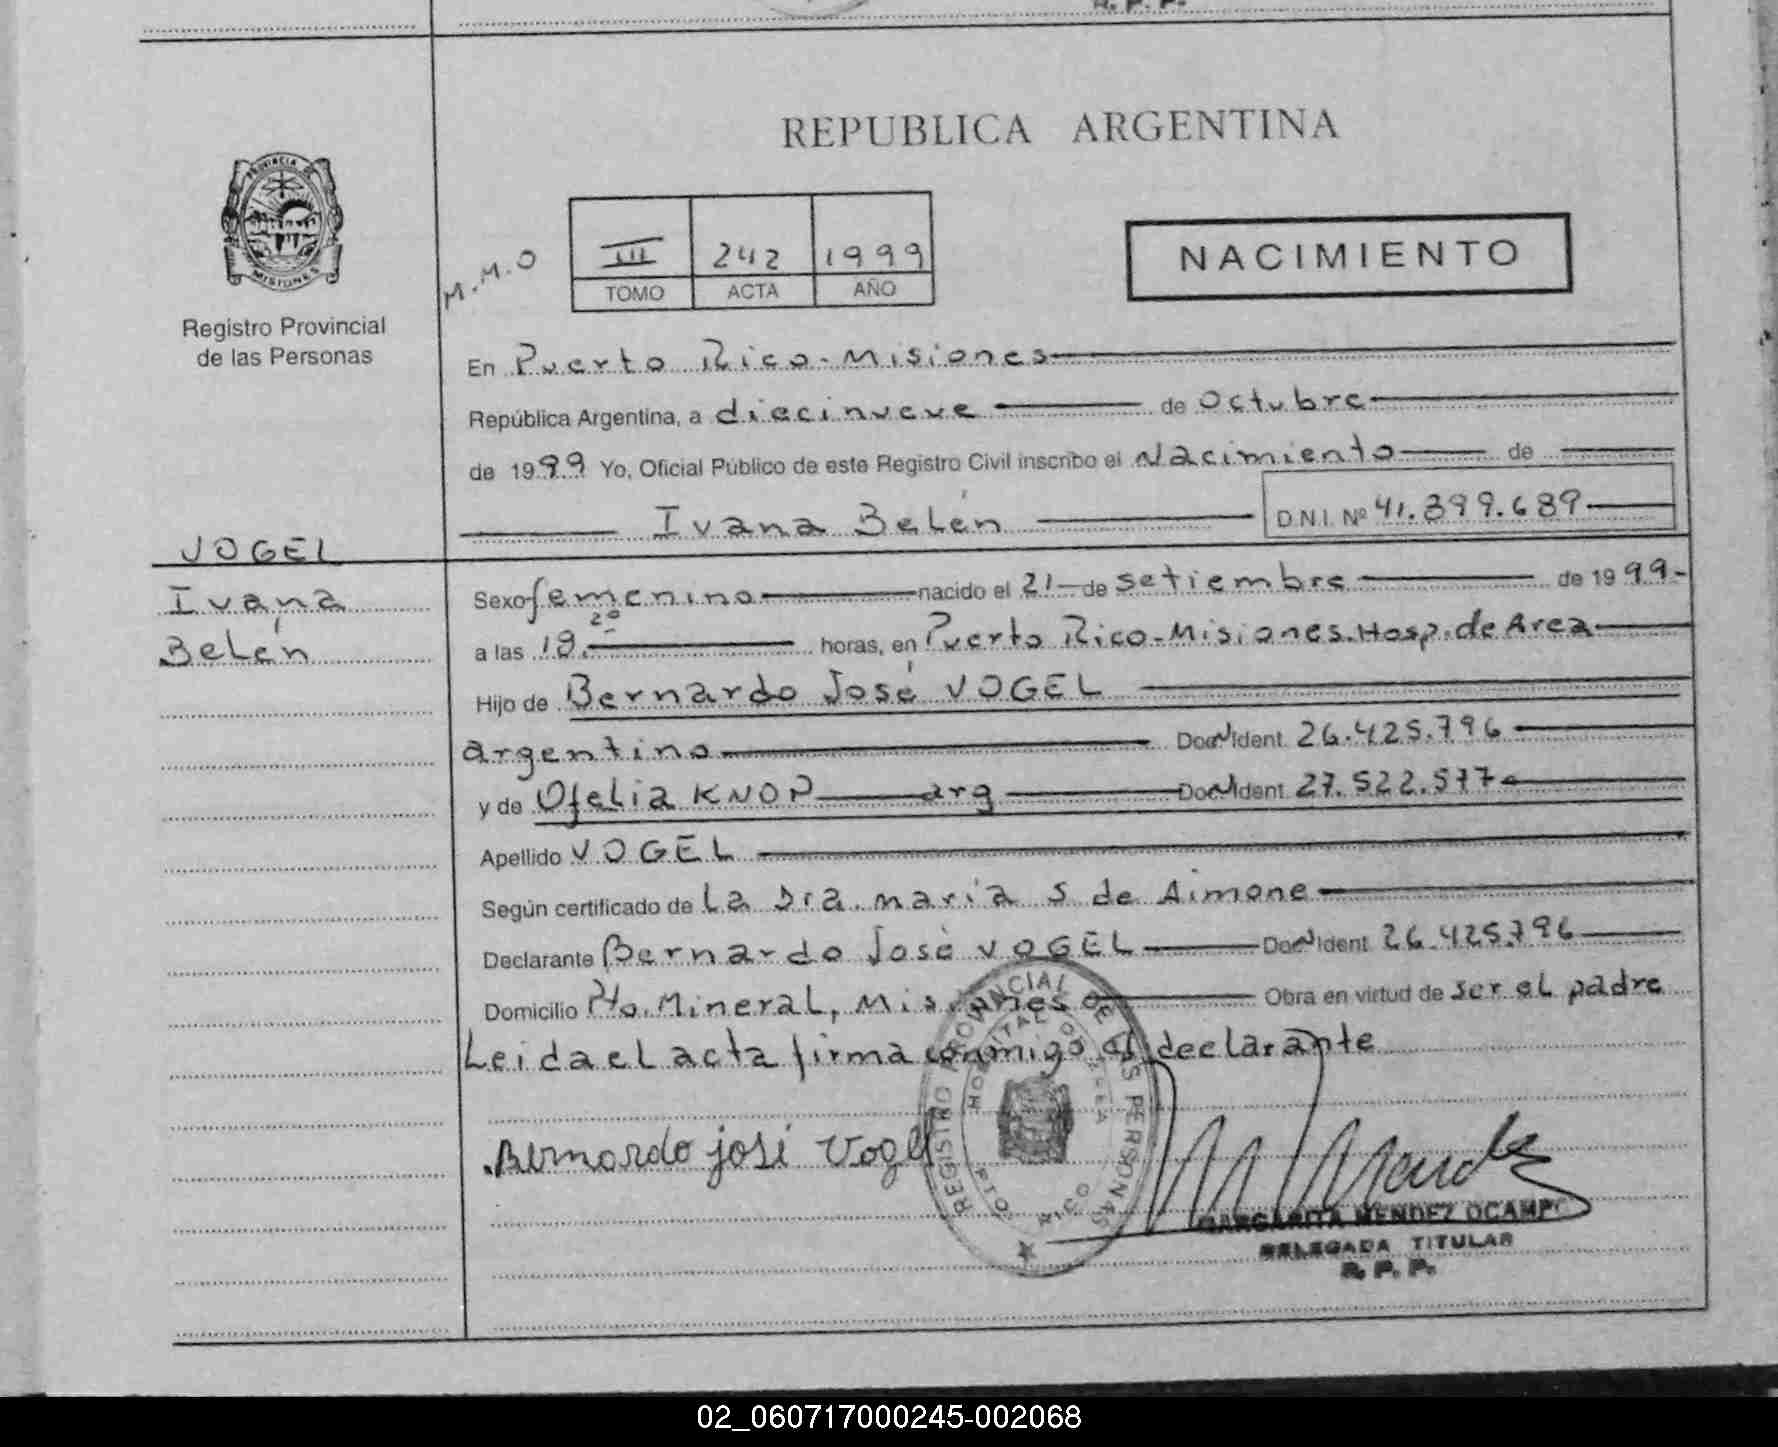 R. P. P.
REPUBLICA ARGENTINA
PROVINCIA DE
MISIONES
Registro Provincial
de las Personas
M.M.O
III 242 1999
TOMO ACTA AÑO
NACIMIENTO
En Puerto Rico-Misiones
República Argentina, a diecinueve de Octubre
de 1999 Yo, Oficial Público de este Registro Civil inscribo el Nacimiento de
Ivana Belén D.N.I. Nº 41.399.689
VOGEL
Ivana
Belén
Sexo femenino nacido el 21 de setiembre de 1999
a las 19.20 horas, en Puerto Rico-Misiones.Hosp.de Area
Hijo de Bernardo José VOGEL
argentino Doc Ident. 26.425.796
y de Ofelia KNOP arg Doc Ident. 27.522.577
Apellido VOGEL
Según certificado de La Dra. maria S de Aimone
Declarante Bernardo José VOGEL Doc Ident 26.425.796
Domicilio Pto. Mineral, Misiones Obra en virtud de ser el padre
Leida el acta firma conmigo el declarante
Bernardo josé Vogel
REGISTRO PROVINCIAL DE LAS PERSONAS
HOSPITAL DE AREA
PTO. RICO
MARGARITA MENDEZ OCAMPO
DELEGADA TITULAR
R. P. P.
02_060717000245-002068